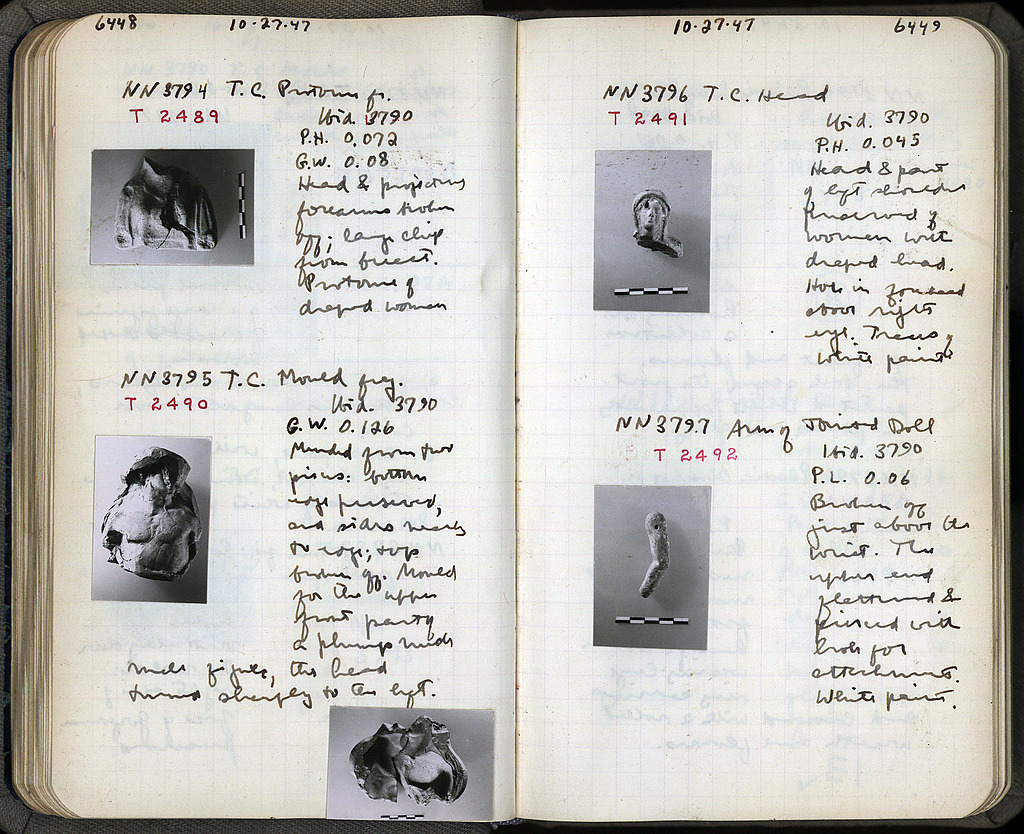 6448 10-27-47
NN 3794 T.C. Protome fr.
T 2489 Ibid. 3790
P.H. 0.072
G.W. 0.08
Head & projecting
forearms broken
off; large chip
from breast.
Protome of
draped woman
NN 3795 T.C. Mould frg.
T 2490 Ibid. 3790
G.W. 0.126
Mended from two
pieces: bottom
edge preserved,
and sides nearly
to edge; top
broken off. Mould
for the upper
front part of
a plump nude
male figure, the head
turned sharply to the left.
10-27-47 6449
NN 3796 T.C. Head
T 2491 Ibid. 3790
P.H. 0.045
Head & part
of left shoulder
preserved of
woman with
draped head.
Hole in forehead
above right
eye. Traces of
white paint
NN 3797 Arm of Jointed Doll
T 2492 Ibid. 3790
P.L. 0.06
Broken off
just above the
wrist. The
upper end
flattened &
pierced with
hole for
attachment.
White paint.